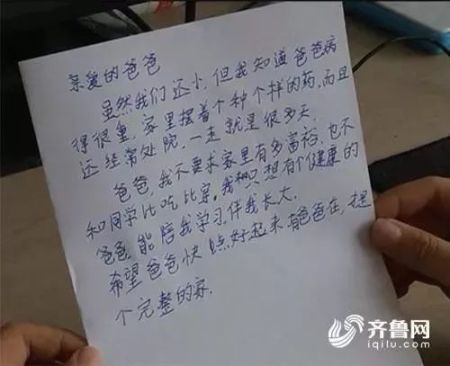 亲爱的爸爸
虽然我们还小,但我知道爸爸病
得很重,家里摆着个种个样的药,而且
还经常处院,一走就是很多天.
爸爸,我不要求家里有多富裕,也不
和同学比吃比穿,我们只想有个健康的
爸爸,能陪我学习伴我长大.
希望爸爸快点好起来,有爸爸在,才是
个完整的家.
齐鲁网
iqilu.com